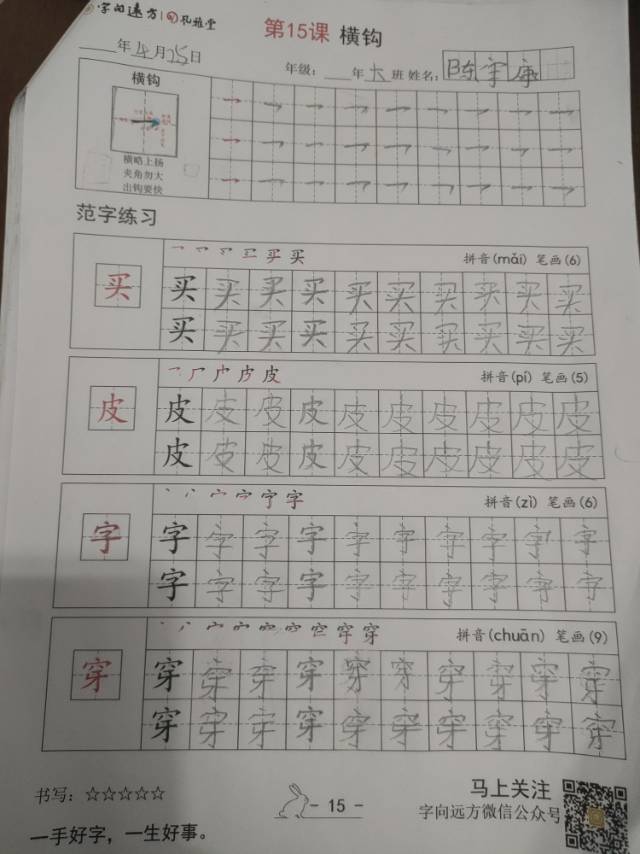 字向远方 孔雅堂
第15课 横钩
年4月25日
年级： 年大班 姓名：陈宇康
横钩
横略上扬
夹角勿大
出钩要快
范字练习
买 拼音(mǎi) 笔画(6)
买 买 买 买 买 买 买 买 买 买
买 买 买 买 买 买 买 买 买 买
皮 拼音(pí) 笔画(5)
皮 皮 皮 皮 皮 皮 皮 皮 皮 皮
皮 皮 皮 皮 皮 皮 皮 皮 皮 皮
字 拼音(zì) 笔画(6)
字 字 字 字 字 字 字 字 字 字
字 字 字 字 字 字 字 字 字 字
穿 拼音(chuān) 笔画(9)
穿 穿 穿 穿 穿 穿 穿 穿 穿 穿
穿 穿 穿 穿 穿 穿 穿 穿 穿 穿
书写：☆☆☆☆☆
一手好字，一生好事。
- 15 -
马上关注
字向远方微信公众号